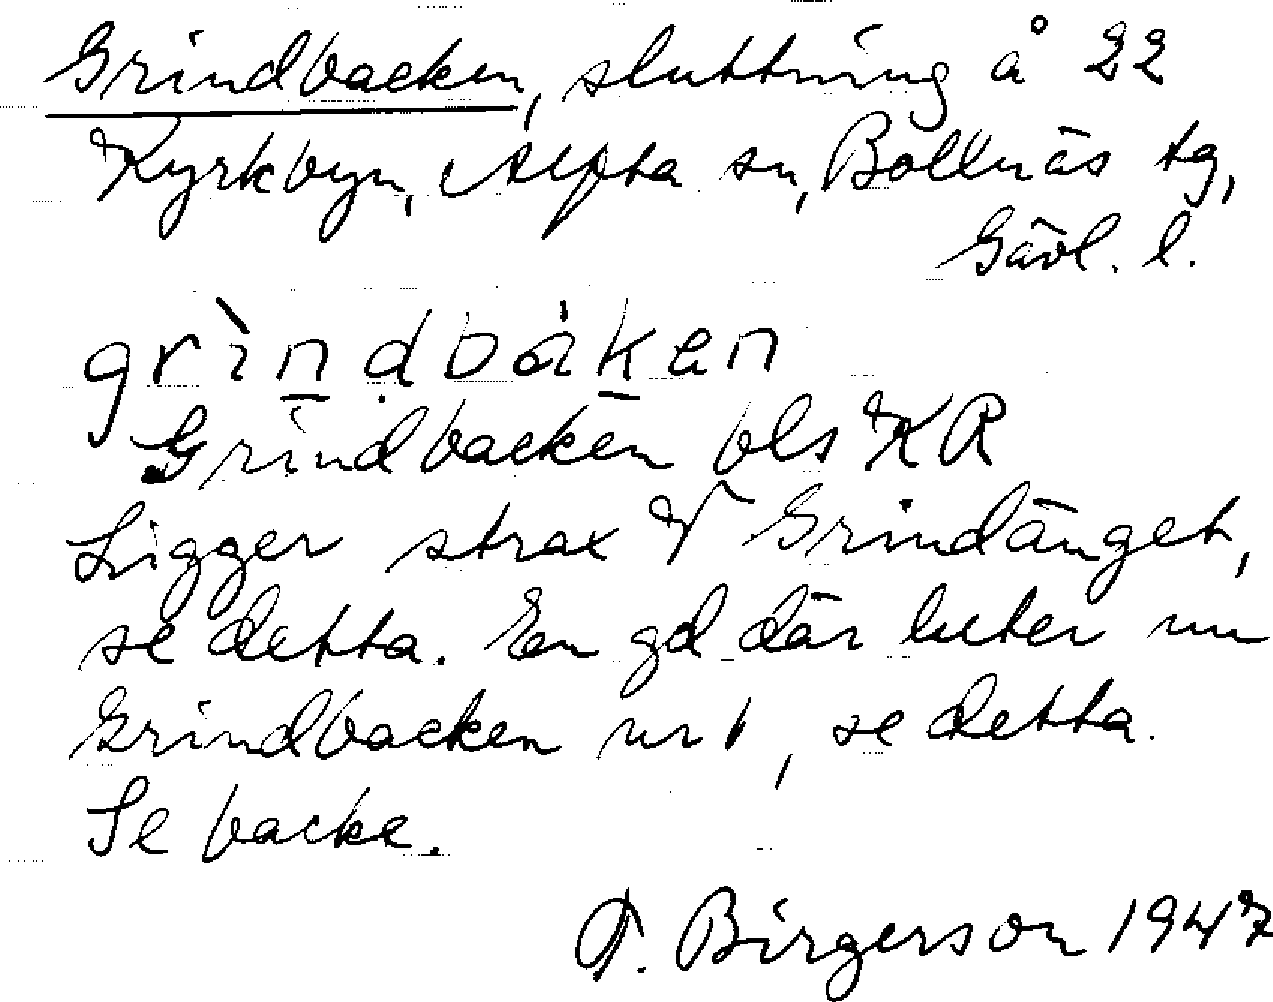 Grindbacken, sluttning å 22
Kyrkbyn, Alfta sn, Bollnäs tg,
Gävl. l.
grìn̲dbak̲en
Grindbacken bls KR
Ligger strax V Grindänget,
se detta. En gd där heter nu
Grindbacken nr 1, se detta.
Se backe.
F. Birgerson 1947